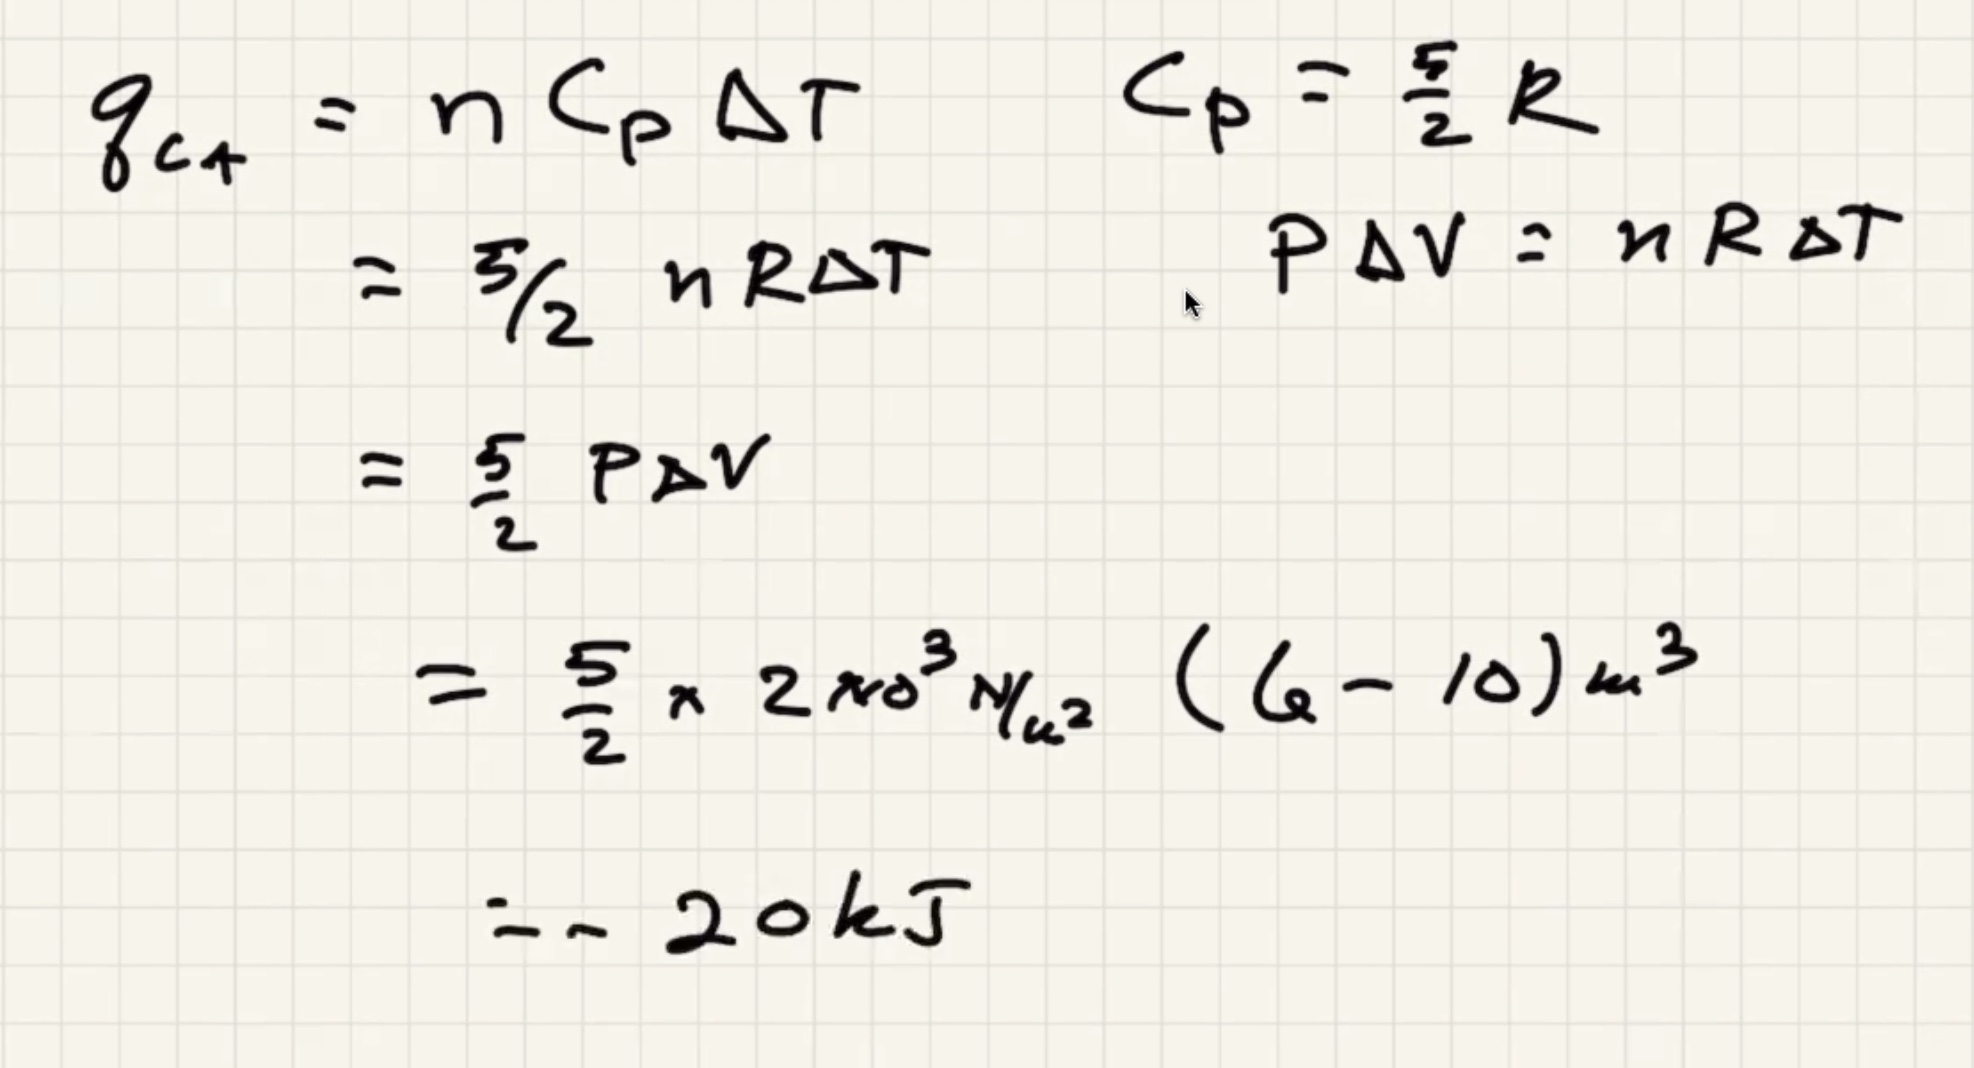 q_CA = n C_p ΔT
C_p = 5/2 R
= 5/2 n R ΔT
P ΔV = n R ΔT
= 5/2 P ΔV
= 5/2 × 2 × 10³ N/m² (6 - 10) m³
= - 20 kJ